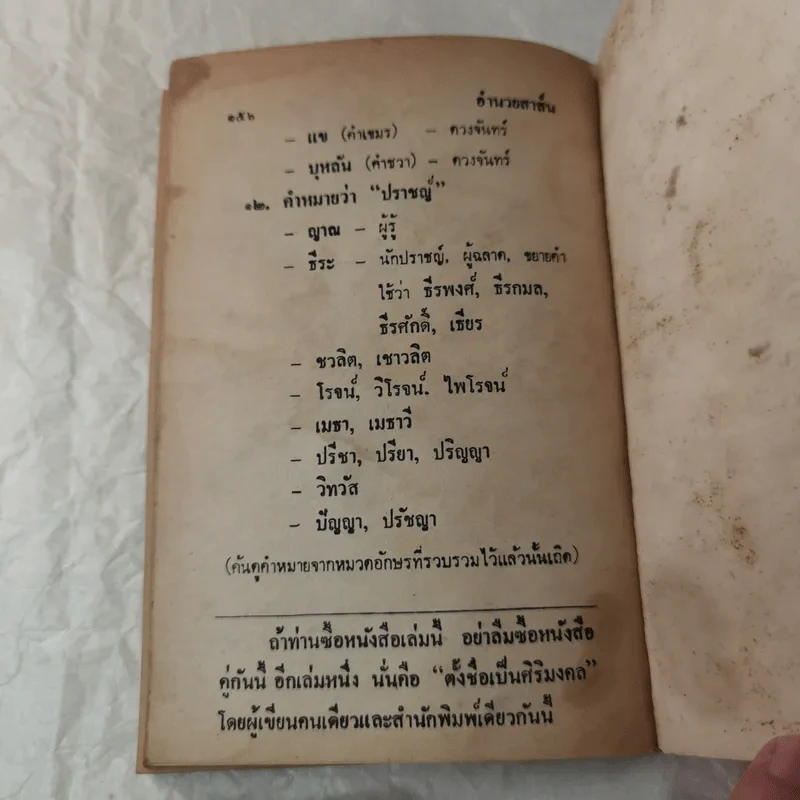 ๑๕๖ อำนวยสาส์น
– แข (คำเขมร) – ดวงจันทร์
– บุหลัน (คำชวา) – ดวงจันทร์
๑๒. คำหมายว่า “ปราชญ์”
– ญาณ – ผู้รู้
– ธีระ – นักปราชญ์, ผู้ฉลาด, ขยายคำ
ใช้ว่า ธีรพงศ์, ธีรกมล,
ธีรศักดิ์, เธียร
– ชวลิต, เชาวลิต
– โรจน์, วิโรจน์. ไพโรจน์
– เมธา, เมธาวี
– ปรีชา, ปรียา, ปริญญา
– วิทวัส
– ปัญญา, ปรัชญา
(ค้นดูคำหมายจากหมวดอักษรที่รวบรวมไว้แล้วนั้นเถิด)
ถ้าท่านซื้อหนังสือเล่มนี้ อย่าลืมซื้อหนังสือ
คู่กันนี้ อีกเล่มหนึ่ง นั่นคือ “ตั้งชื่อเป็นศิริมงคล”
โดยผู้เขียนคนเดียวและสำนักพิมพ์เดียวกันนี้